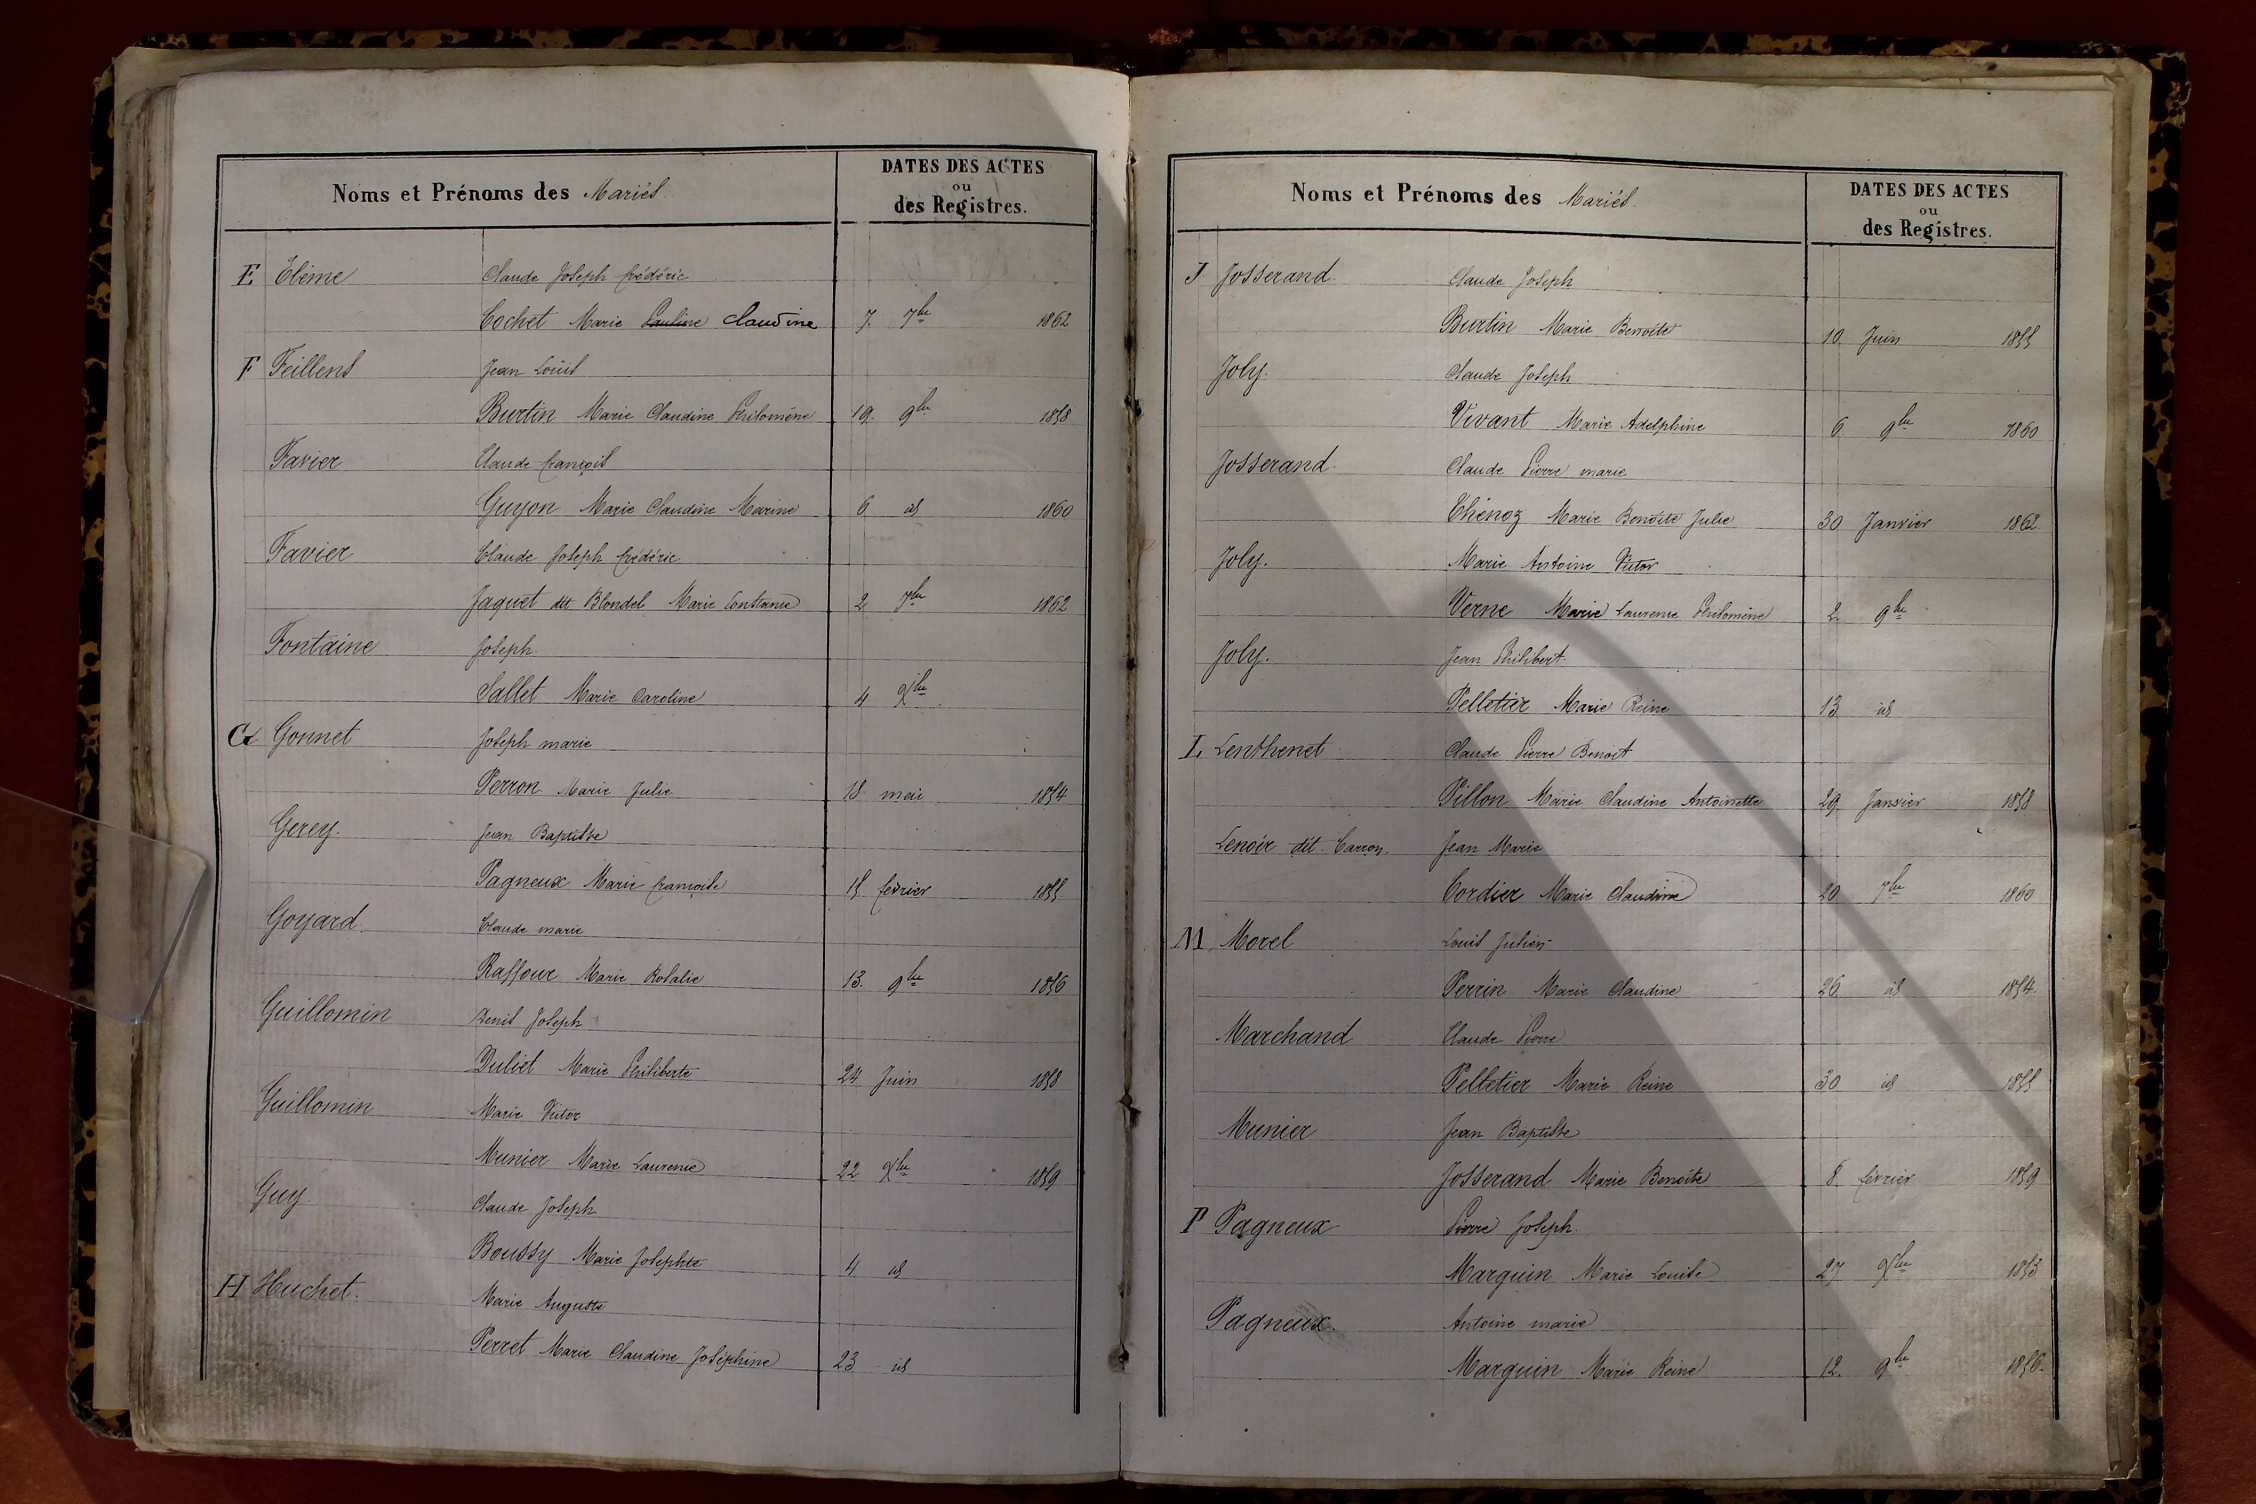 Noms et Prénoms des Mariés.
DATES DES ACTES
ou
des Registres.
E Eléme Claude Joseph frédéric
Cochet Marie Pauline Claudine 7. 7bre 1862
F Feillens Jean Louis
Burtin Marie Claudine Philomène 19. 9bre 1858
Favier Claude françois
Guyon Marie Claudine Marine 6 id 1860
Favier Claude Joseph frédéric
Jaquet dit Blondel Marie Constance 2 7bre 1862
Fontaine Joseph
Sallet Marie Caroline 4 Xbre
G Gonnet Joseph marie
Perron Marie Julie 18 mai 1854
Gerey. Jean Baptiste
Pagneux Marie françoise 15 février 1855
Goyard Claude marie
Raffour Marie Rosalie 13. 9bre 1856
Guillomin Denis Joseph
Duliet Marie Philiberte 24 Juin 1858
Guillomin Marie Victor
Munier Marie Laurence 22 Xbre 1859
Guy Claude Joseph
Boussy Marie Josephte 4 id
H Huchet. Marie Auguste
Perret Marie Claudine Joséphine 23 id
Noms et Prénoms des Mariés.
DATES DES ACTES
ou
des Registres.
J Josserand Claude Joseph
Burtin Marie Benoite 10 Juin 1855
Joly. Claude Joseph
Vivant Marie Adelphine 6 9bre 1860
Josserand Claude Pierre marie
Thénoz Marie Benoite Julie 30 Janvier 1862
Joly. Marie Antoine Victor
Verne Marie Laurence Philomène 2 9bre
Joly. Jean Philibert
Pelletier Marie Reine 13 id
L Lenthenet Claude Pierre Benoit
Pillon Marie Claudine Antoinette 29 Janvier 1858
Lenoir dit Carron Jean Marie
Cordier Marie Claudine 20 7bre 1860
M Morel Louis Julien
Perrin Marie Claudine 26 id 1854
Marchand Claude Pierre
Pelletier Marie Reine 30 id 1855
Munier Jean Baptiste
Josserand Marie Benoite 8 février 1859
P Pagneux Pierre Joseph
Marguin Marie Louise 27 Xbre 1853
Pagneux Antoine marie
Marguin Marie Reine 12. 9bre 1856.